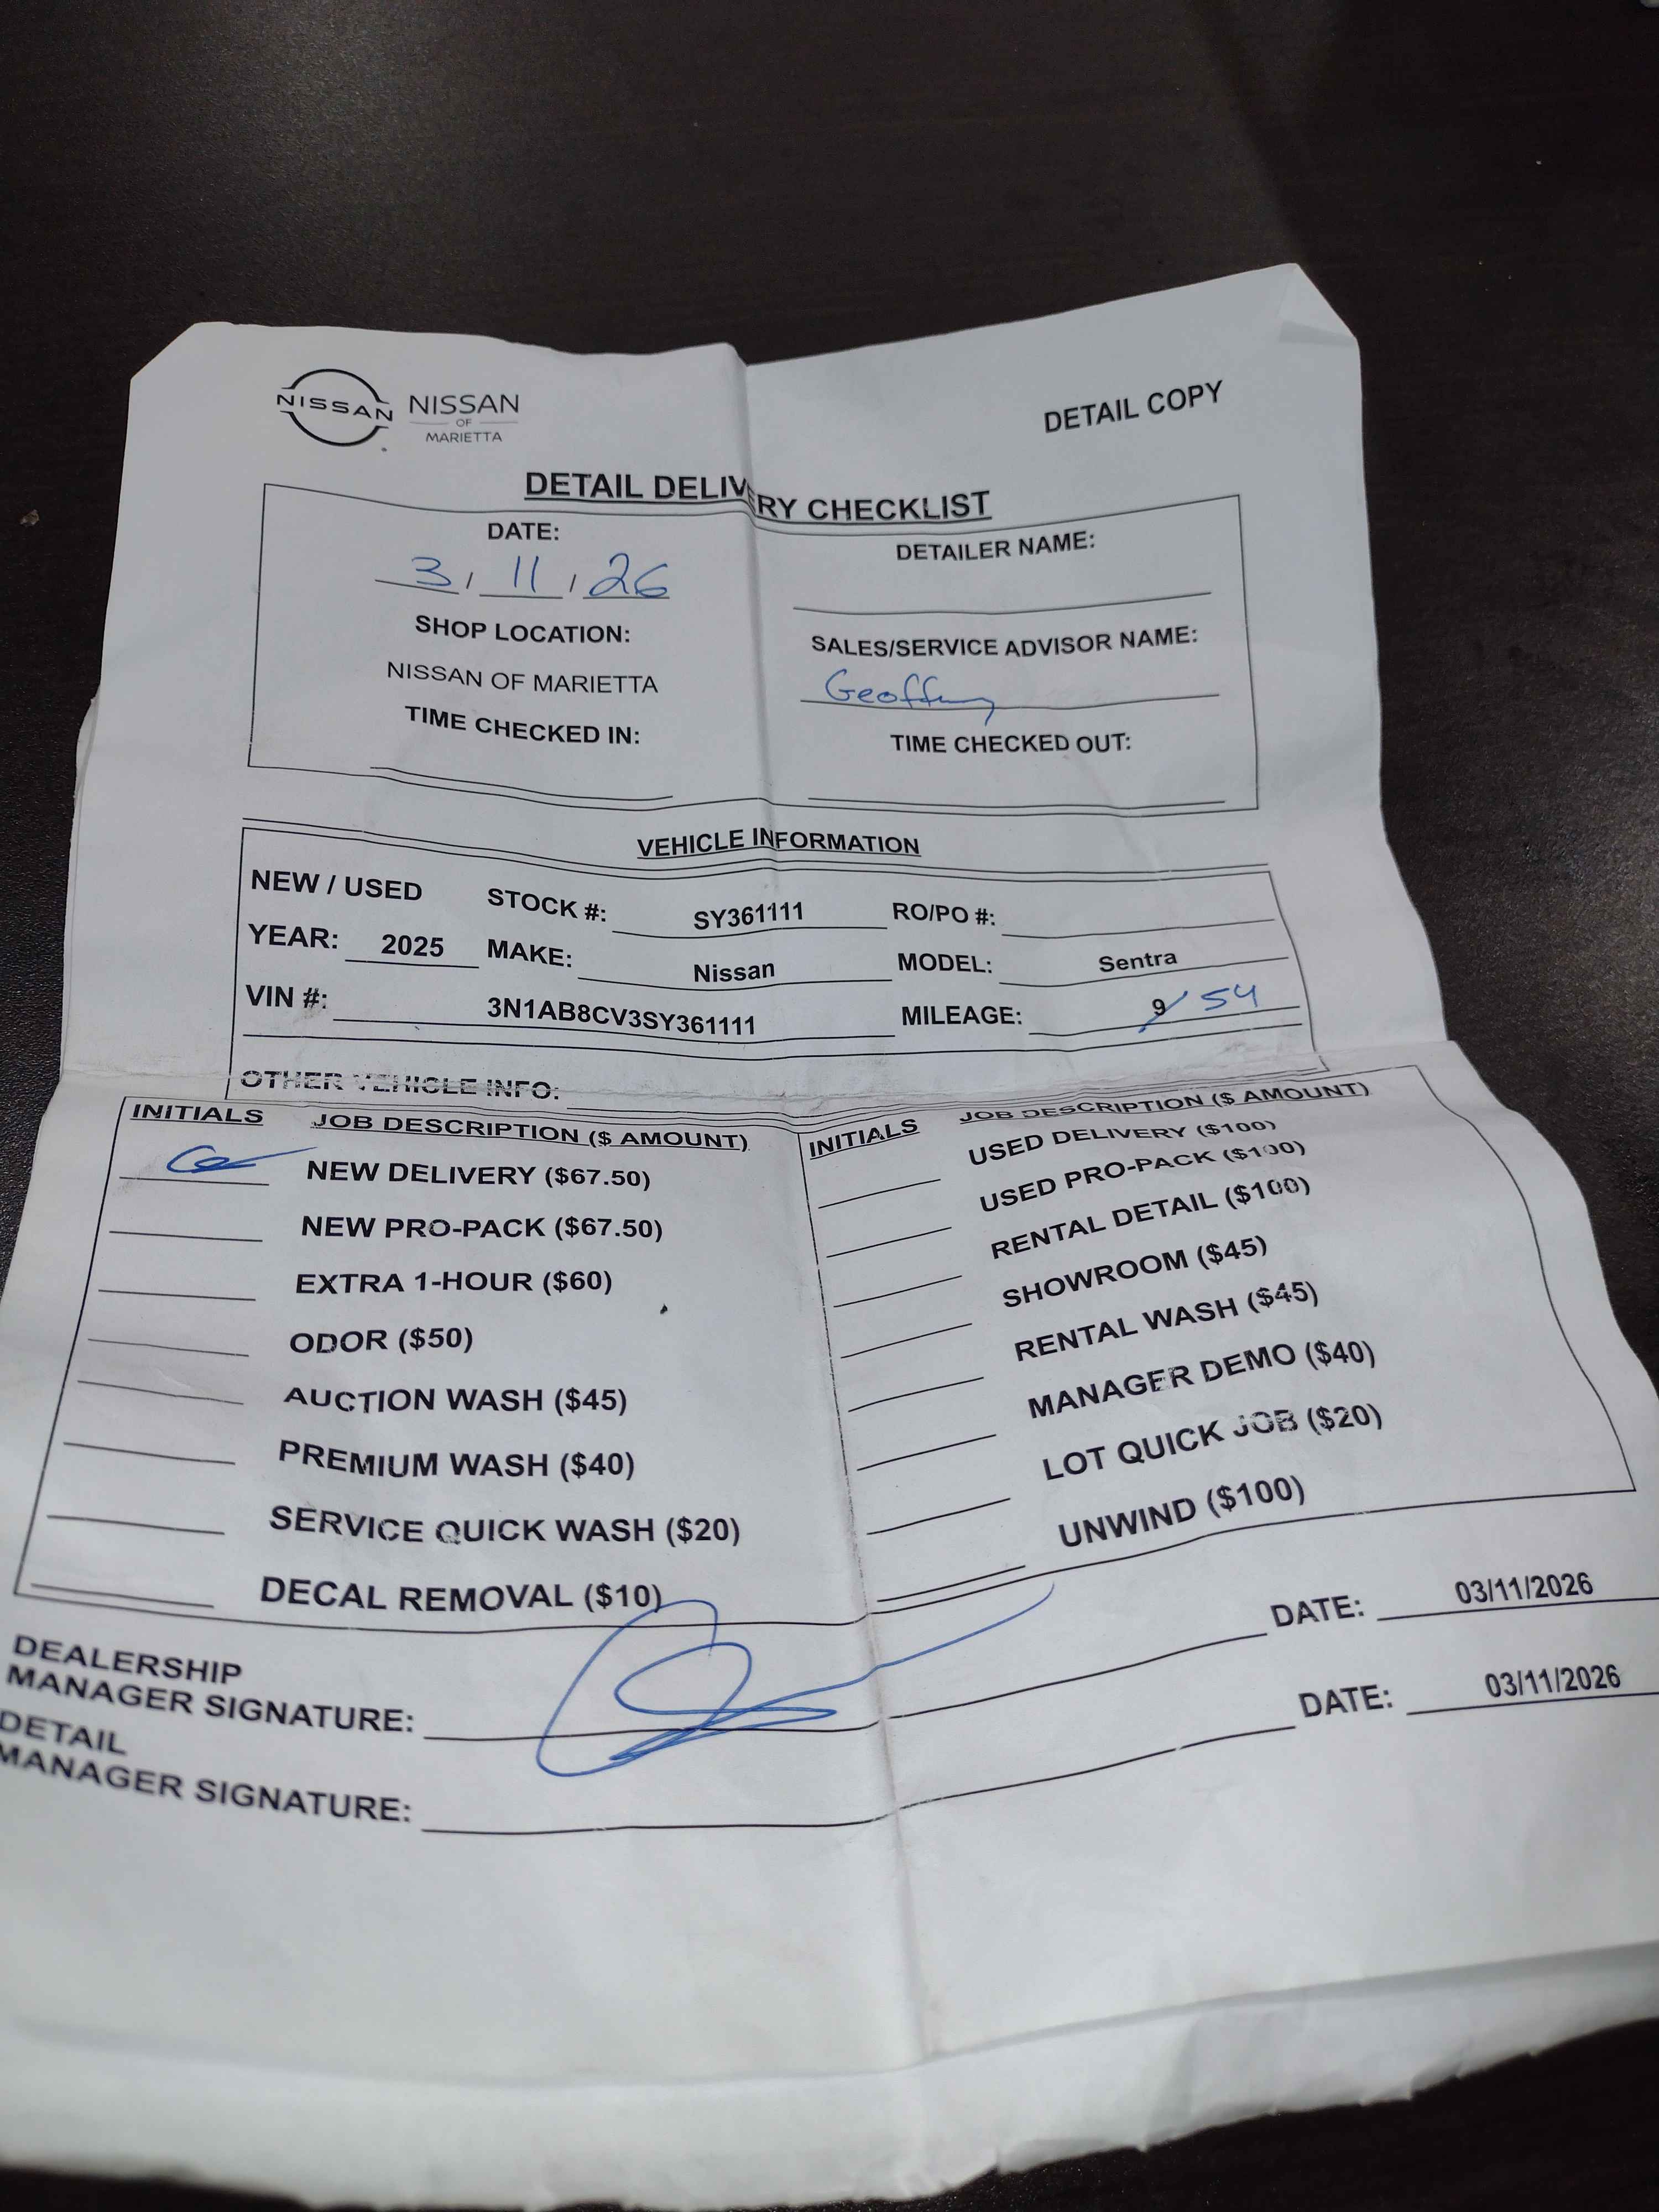 NISSAN NISSAN
OF
MARIETTA
DETAIL COPY
DETAIL DELIVERY CHECKLIST
DATE:
3 / 11 / 26
DETAILER NAME:
SHOP LOCATION:
NISSAN OF MARIETTA
SALES/SERVICE ADVISOR NAME:
Geoffrey
TIME CHECKED IN:
TIME CHECKED OUT:
VEHICLE INFORMATION
NEW / USED STOCK #: SY361111 RO/PO #:
YEAR: 2025 MAKE: Nissan MODEL: Sentra
VIN #: 3N1AB8CV3SY361111 MILEAGE: 9 54
OTHER VEHICLE INFO:
INITIALS JOB DESCRIPTION ($ AMOUNT)
NEW DELIVERY ($67.50)
NEW PRO-PACK ($67.50)
EXTRA 1-HOUR ($60)
ODOR ($50)
AUCTION WASH ($45)
PREMIUM WASH ($40)
SERVICE QUICK WASH ($20)
DECAL REMOVAL ($10)
INITIALS JOB DESCRIPTION ($ AMOUNT)
USED DELIVERY ($100)
USED PRO-PACK ($100)
RENTAL DETAIL ($100)
SHOWROOM ($45)
RENTAL WASH ($45)
MANAGER DEMO ($40)
LOT QUICK JOB ($20)
UNWIND ($100)
DEALERSHIP
MANAGER SIGNATURE: DATE: 03/11/2026
DETAIL
MANAGER SIGNATURE: DATE: 03/11/2026